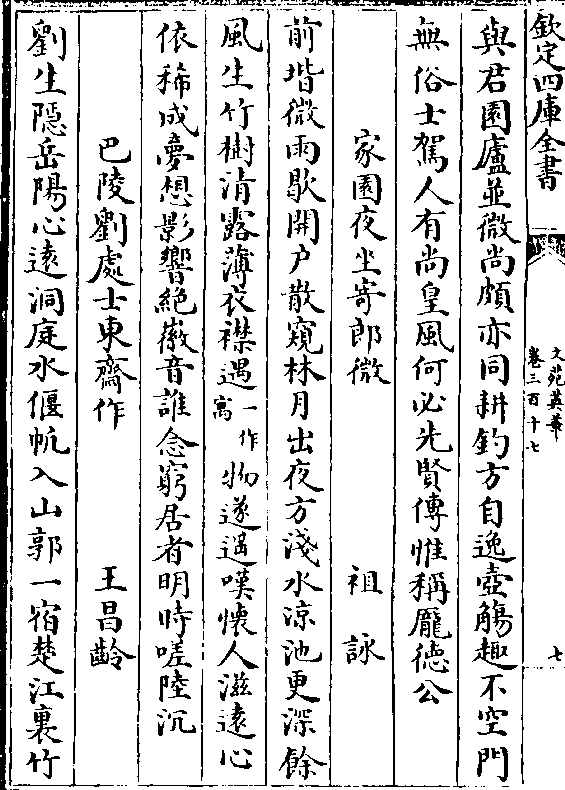 欽定四庫全書
文苑英華
卷三百十七
七
與君園廬並微尚頗亦同耕釣方自逸壺觴趣不空門
無俗士駕人有尚皇風何必先賢傳惟稱龎德公
家園夜坐寄郎微
祖詠
前堦微雨歇開户散窺林月出夜方淺水涼池更深餘
風生竹樹清露薄衣襟遇一作寓物遂遇嘆懷人滋遠心
依稀成夢想影響絶徽音誰念窮居者明時嗟陸沉
巴陵劉處士東齋作
王昌齡
劉生隠岳陽心遠洞庭水偃帆入山郭一宿楚江裏竹